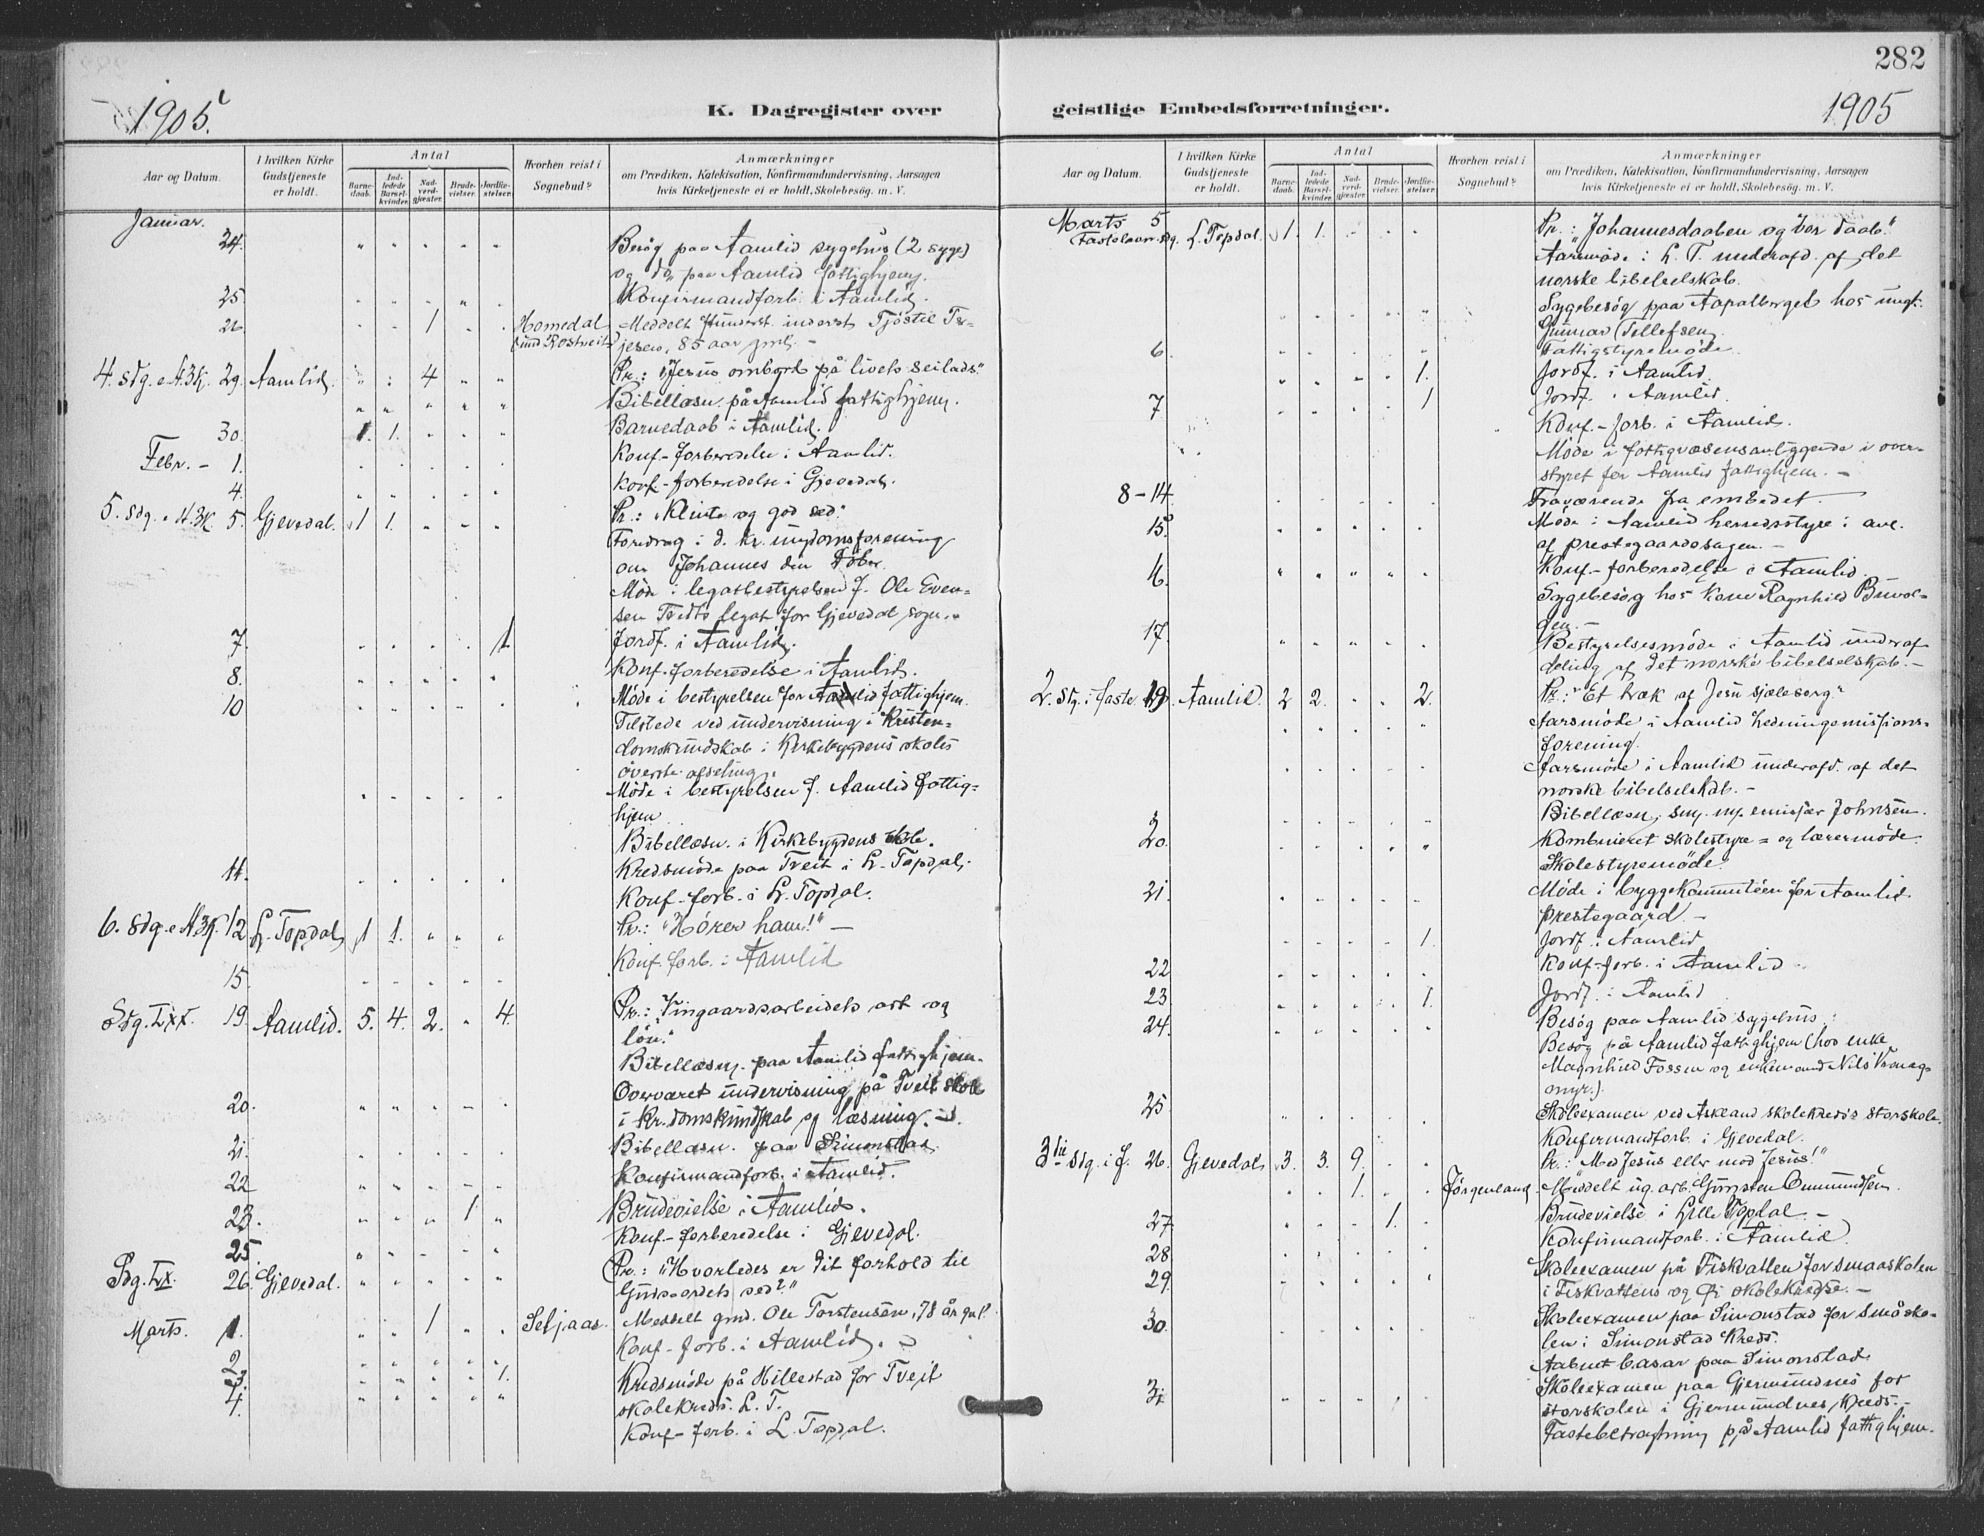 1905.
K. Dagregister over
Aar og Datum.
I hvilken Kirke Gudstjeneste er holdt.
Antal
Barnedaab.
Indledede Barselkvinder.
Nadverdgjæster.
Brudevielser.
Jordfæstelser.
Hvorhen reist i Sognebud?
Anmærkninger
om Prædiken, Katekisation, Konfirmandundervisning, Aarsagen
hvis Kirketjeneste ei er holdt, Skolebesøg. m. V.
Januar.
24. Besøg paa Aamlid sygehus (2 syge)
og do paa Aamlid fattighjem.
25 Konfirmandforb. i Aamlid.
26 1 Homedal Meddelt
und. Rostveit 85 aar gml. -
4. Sdg. e. H.3K. 29. Aamlid 4 Pr.: "Jesus ombord på livets seilads."
Bibellæsn. på Aamlid fattighjem.
30. 1. 1. Barnedaab i Aamlid.
Febr. - 1. Konf-forberedelse i Aamlid.
4. Konf-forberedelse i Gjevedal.
5. Sdg. e. H.3K. 5. Gjevedal. 1 1. Pr.: Klinte og god sæd.
Foredrag i d. kr. ungdomsforening
om Johannes den Døber.
Møde i legatbestyrelsen f. Ole Even-
sen Tvedts legat for Gjevedal sogn.
7. 1 Jordf. i Aamlid.
8. Konf-forberedelse i Aamlid.
10 Møde i bestyrelsen for Aamlid fattighjem.
Tilstede ved undervisning i Kristen-
domskundskab i Kirkebygdens skoles
øverste afdeling.
Møde i bestyrelsen f. Aamlid fattig-
hjem
Bibellæsn. i Kirkebygdens skole.
11. Kredsmøde paa Tveit i L. Topdal.
Konf-forb. i L. Topdal.
6. Sdg. e. H.3K. 12 L. Topdal 1 1. Pr.: "Hører ham!" -
15 Konf. forb. i Aamlid
Sdg. Lxx. 19. Aamlid. 5. 4. 2. 4. Pr.: "Vingaardsarbeidets art og
løn."
Bibellæsn. paa Aamlid fattighjem.
20. Overværet undervisning på Tveit skole
i kr.domskundskab og læsning.
21. Bibellæsn. paa Simonstad
22 Konfirmandforb. i Aamlid.
23. 1. Brudevielse i Aamlid.
25. Konf-forberedelse i Gjevedal.
Sdg. Lx. 26. Gjevedal. Pr.: "Hvorledes er dit forhold til
Gudsordets sæd?"
Marts. 1. 1 Seljaas. Meddelt gmd. Ole Torstensen, 78 år gml.
Konf-forb. i Aamlid.
2.
3. 1. Kredsmøde på Hillestad for Tveit
4. skolekreds. L. T.
Konf-forb. i L. Topdal.
282
geistlige Embedsforretninger.
1905
Aar og Datum.
I hvilken Kirke Gudstjeneste er holdt.
Antal
Barnedaab.
Indledede Barselkvinder.
Nadverdgjæster.
Brudevielser.
Jordfæstelser.
Hvorhen reist i Sognebud?
Anmærkninger
om Prædiken, Katekisation, Konfirmandundervisning, Aarsagen
hvis Kirketjeneste ei er holdt, Skolebesøg. m. V.
Marts 5 Fastelavnsdg. L. Topdal. 1. 1. Pr.: "Johannesdaaben og vor daab."
Aarsmøde i L. T. underafd. af det
norske bibelselskab.
Sygebesøg paa hos ungk.
Gunnar Tellefsen.
6. Fattigstyremøde.
1. Jordf. i Aamlid.
7 1 Jordf. i Aamlid.
Konf-forb. i Aamlid.
Møde i fattigvæsensanliggende i over-
styret for Aamlid fattighjem. -
8-14. Fraværende fra embedet.
15. Møde i Aamlid herredsstyre i anl.
af prestegaardssagen. -
16. Konf-forberedelse i Aamlid.
Sygebesøg hos kone Ragnhild
17. Bestyrelsesmøde i Aamlid underaf-
deling af det norske bibelselskab. -
2. Sdg. i faste 19. Aamlid. 2 2. 2. Pr.: "Et træk af Jesu sjælesorg."
Aarsmøde i Aamlid Hedningemissions-
forening.
Aarsmøde i Aamlid underafd. af det
norske bibelselskab. -
Bibellæsn. sm. m. emissær Johnsen.
20. Kombineret skolestyre= og lærermøde.
Skolestyremøde
21. Møde i byggekomiteen for Aamlid
prestegaard -
1. Jordf. i Aamlid
22 Konf-forb. i Aamlid
23. 1. Jordf. i Aamlid
24. Besøg paa Aamlid sygehus.
Besøg på Aamlid fattighjem (hos enke
Magnhild Fossen og enkemand Nils
myr.)
25 Skoleexamen ved Askland skolekreds's storskole.
Konfirmandforb. i Gjevedal.
3die Sdg. i f. 26. Gjevedal 3. 3. 9. Pr.: "Med Jesus eller mod Jesus!"
1. Jørgenland Meddelt ug. arb. Ommundsen.
27. 1. Brudevielse i Lille Topdal. -
28 Konfirmandforb. i Aamlid.
29. Skoleexamen på Fiskvatten for smaaskolen
i Fiskvattens og skolekredse. -
30. Skoleexamen paa Simonstad for småsko-
len i Simonstad Kreds.
Aabnet basar paa Simonstad.
31 Skoleexamen paa Gjermundnes for
storskolen i Gjermundnes Kreds. -
Fastebetragtning på Aamlid fattighjem.